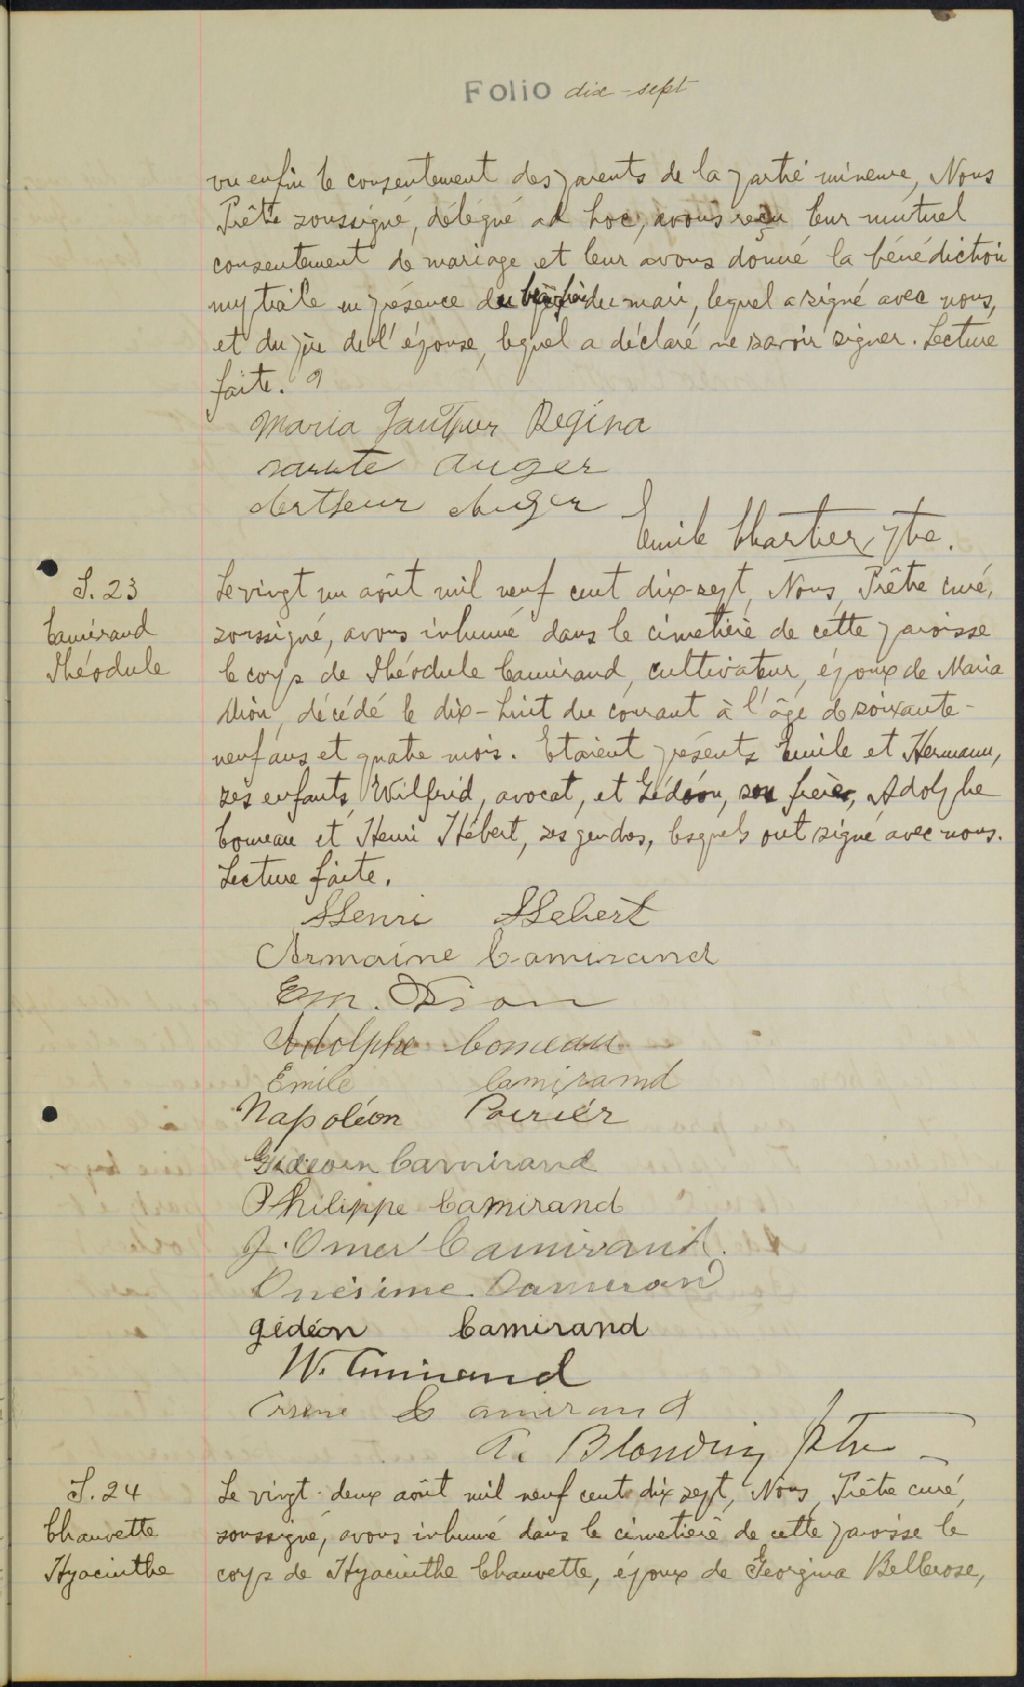 Folio dix-sept
vu enfin le consentement des parents de la partie mineure, Nous
Prêtre soussigné, délégué ad hoc, avons reçu leur mutuel
consentement de mariage et leur avons donné la bénédiction
nuptiale en présence du beau-frère du mari, lequel a signé avec nous,
et du père de l'épouse, lequel a déclaré ne savoir signer. Lecture
faite.
Maria Regina
Auger
Arthur Auger
Emile Chartier, ptre.
S. 23
Camirand
Théodule
Le vingt un août mil neuf cent dix-sept, Nous, Prêtre curé,
soussigné, avons inhumé dans le cimetière de cette paroisse
le corps de Théodule Camirand, cultivateur, époux de Maria
Dion, décédé le dix-huit du courant à l'âge de soixante-
neuf ans et quatre mois. Etaient présents Emile et Hermann,
ses enfants, Wilfrid, avocat, et Gédéon, son frère, Adolphe
Comeau et Henri Hébert, ses gendres, lesquels ont signé avec nous.
Lecture faite.
Henri Hebert
Armaine Camirand
Em. Dion
Adolphe Comeau
Emile Camirand
Napoléon Poiriér
Gideon Camirand
Philippe Camirand
J. Omer Camirand.
Onésime Camirand
Gédéon Camirand
W. Camirand
Arsène Camirand
A. Blondin Ptre
S. 24
Chauvette
Hyacinthe
Le vingt-deux août mil neuf cent dix sept, Nous, Prêtre curé,
soussigné, avons inhumé dans le cimetière de cette paroisse le
corps de Hyacinthe Chauvette, époux de Georgina Bellerose,